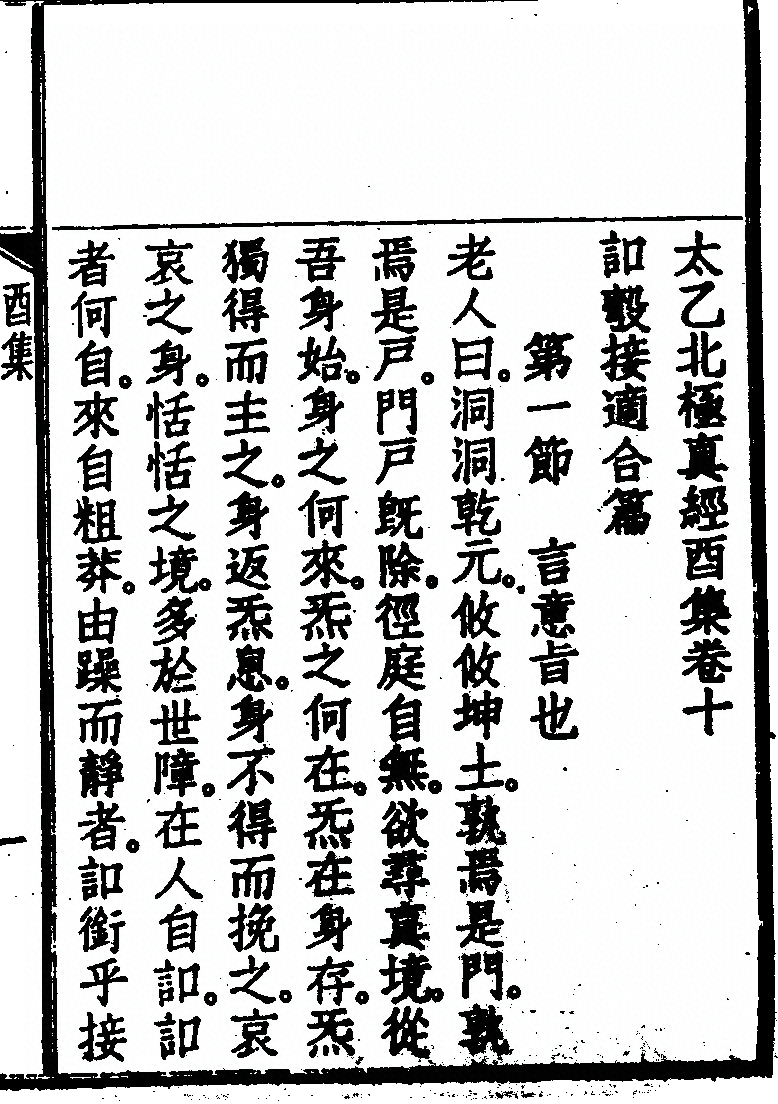 太乙北極真經酉集卷十
訆彀接適合篇
第一節　言意旨也
老人曰。洞洞乾元。攸攸坤土。孰焉是門。孰
焉是戸。門戸既除。徑庭自無。欲尋真境。從
吾身始。身之何來。炁之何在。炁在身存。炁
獨得而主之。身返炁息。身不得而挽之。哀
哀之身。恬恬之境。多於世障。在人自訆。訆
者何自。來自粗莽。由躁而靜者。訆銜乎接
酉集
一